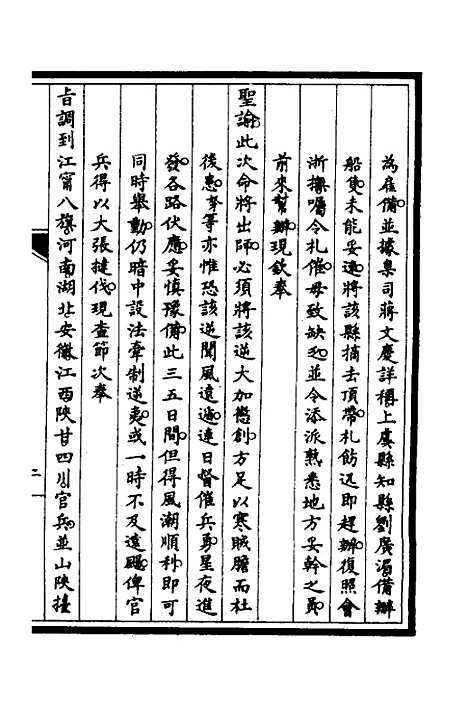 為雇備並據臬司蔣文慶詳稱上虞縣知縣劉廣湄備辦
船隻未能妥速將該縣摘去頂帶札飭迅即趕辦復照會
浙撫囑令札催毋致缺乏並令添派熟悉地方妥幹之員
前來幫辦現欽奉
聖諭此次命將出師必須將該逆大加懲創方足以寒賊膽而杜
後患等亦惟恐該逆聞風遠遁連日督催兵勇星夜進
發各路伏應妥慎豫備此三五日間但得風潮順利即可
同時舉動仍暗中設法牽制逆夷或一時不及遠颺俾官
兵得以大張撻伐現查節次奉
旨調到江甯八旗河南湖北安徽江西陝甘四川官兵並山陝擡
二